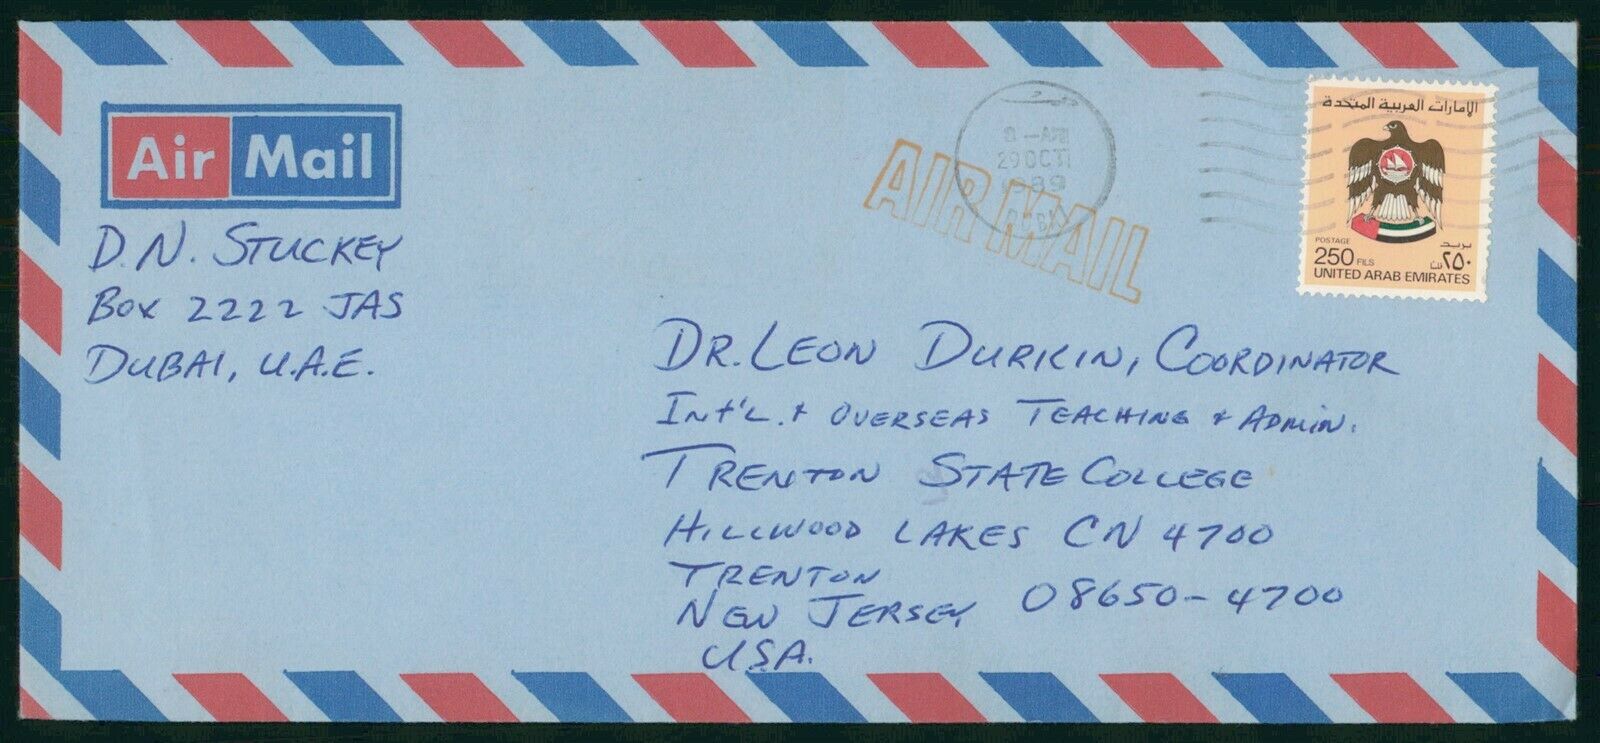 Air Mail
D.N. STUCKEY
BOX 2222 JAS
DUBAI, U.A.E.
29 OC
1989
AIR MAIL
الإمارات العربية المتحدة
POSTAGE
250 FILS
بريد
٢٥٠ فلس
UNITED ARAB EMIRATES
DR. LEON DURKIN, COORDINATOR
INT'L. & OVERSEAS TEACHING & ADMIN.
TRENTON STATE COLLEGE
HILLWOOD LAKES CN 4700
TRENTON
NEW JERSEY 08650-4700
U.S.A.